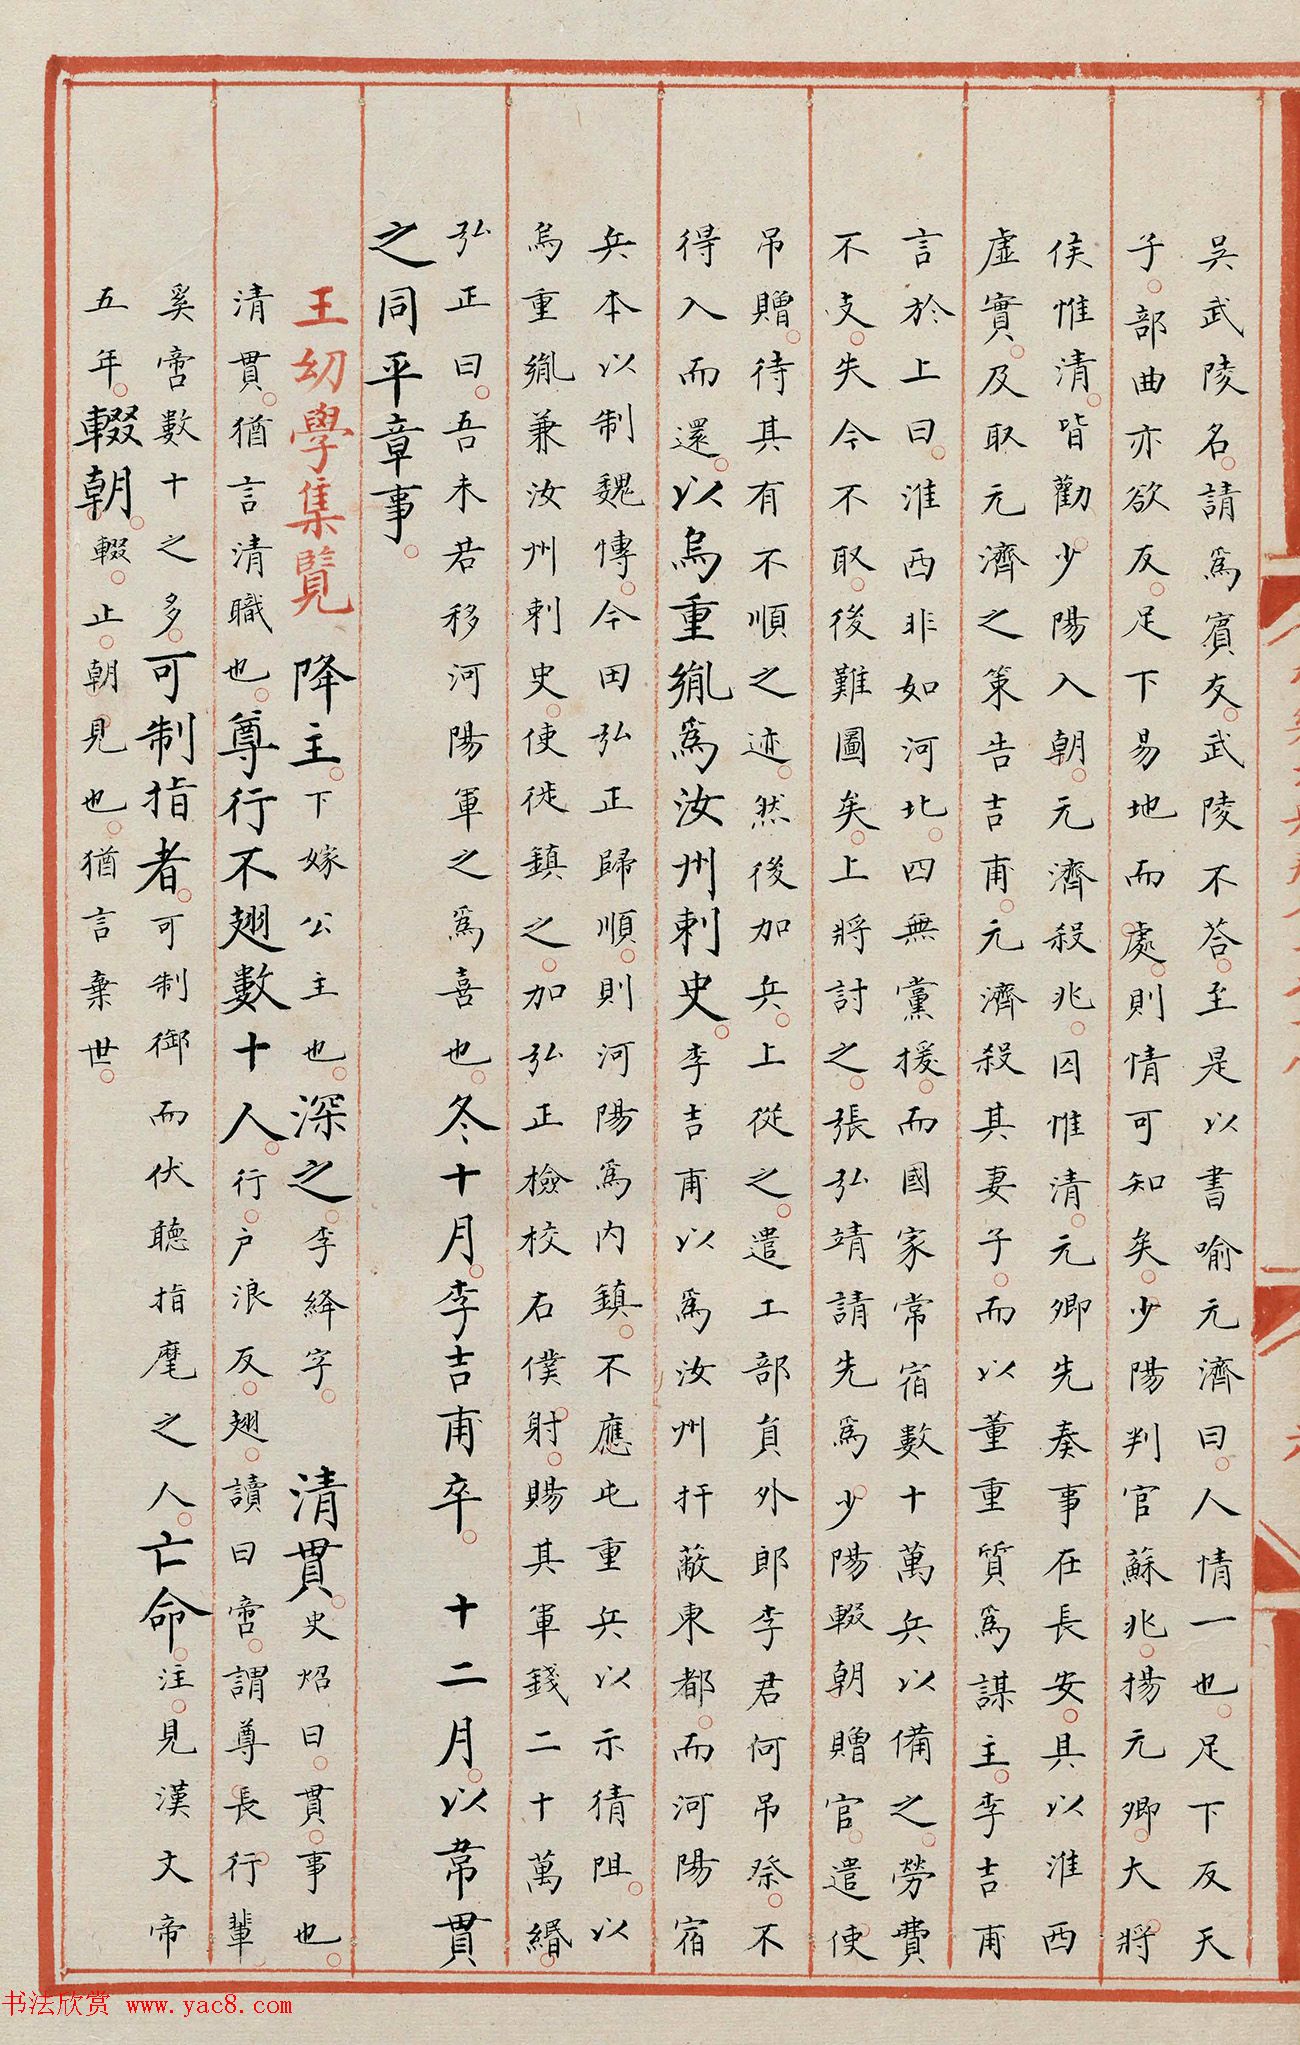 吳武陵名請爲賓友武陵不荅至是以書喻元濟曰人情一也足下反天
子部曲亦欲反足下易地而處則情可知矣少陽判官蘇兆揚元卿大將
侯惟清皆勸少陽入朝元濟殺兆囚惟清元卿先奏事在長安具以淮西
虛實及取元濟之策告吉甫元濟殺其妻子而以董重質爲謀主李吉甫
言於上曰淮西非如河北四無黨援而國家常宿數十萬兵以備之勞費
不支失今不取後難圖矣上將討之張弘靖請先爲少陽輟朝贈官遣使
吊贈待其有不順之迹然後加兵上從之遣工部員外郎李君何吊祭不
得入而還以烏重胤爲汝州刺史李吉甫以爲汝州扞蔽東都而河陽宿
兵本以制魏博今田弘正歸順則河陽爲内鎮不應屯重兵以示猜阻以
烏重胤兼汝州刺史使徙鎮之加弘正檢校右僕射賜其軍錢二十萬緡
弘正曰吾未若移河陽軍之爲喜也冬十月李吉甫卒 十二月以韋貫
之同平章事
王幼學集覽 降主下嫁公主也深之李絳字 清貫史炤曰貫事也
清貫猶言清職也尊行不翅數十人行户浪反翅讀曰啻謂尊長行輩
奚啻數十之多可制指者可制御而伏聽指麾之人亡命注見漢文帝
五年輟朝輟止朝見也猶言棄世
书法欣赏 www.yac8.com